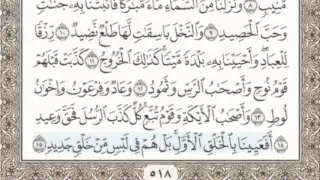 مُّنِيبٍ ٨ وَنَزَّلْنَا مِنَ ٱلسَّمَآءِ مَآءً مُّبَٰرَكًا فَأَنۢبَتْنَا بِهِۦ جَنَّٰتٍ
وَحَبَّ ٱلْحَصِيدِ ٩ وَٱلنَّخْلَ بَاسِقَٰتٍ لَّهَا طَلْعٌ نَّضِيدٌ ١٠ رِّزْقًا
لِّلْعِبَادِ وَأَحْيَيْنَا بِهِۦ بَلْدَةً مَّيْتًا كَذَٰلِكَ ٱلْخُرُوجُ ١١ كَذَّبَتْ قَبْلَهُمْ
قَوْمُ نُوحٍ وَأَصْحَٰبُ ٱلرَّسِّ وَثَمُودُ ١٢ وَعَادٌ وَفِرْعَوْنُ وَإِخْوَٰنُ
لُوطٍ ١٣ وَأَصْحَٰبُ ٱلْأَيْكَةِ وَقَوْمُ تُبَّعٍ كُلٌّ كَذَّبَ ٱلرُّسُلَ فَحَقَّ وَعِيدِ
١٤ أَفَعَيِينَا بِٱلْخَلْقِ ٱلْأَوَّلِ بَلْ هُمْ فِى لَبْسٍ مِّنْ خَلْقٍ جَدِيدٍ ١٥
٥١٨